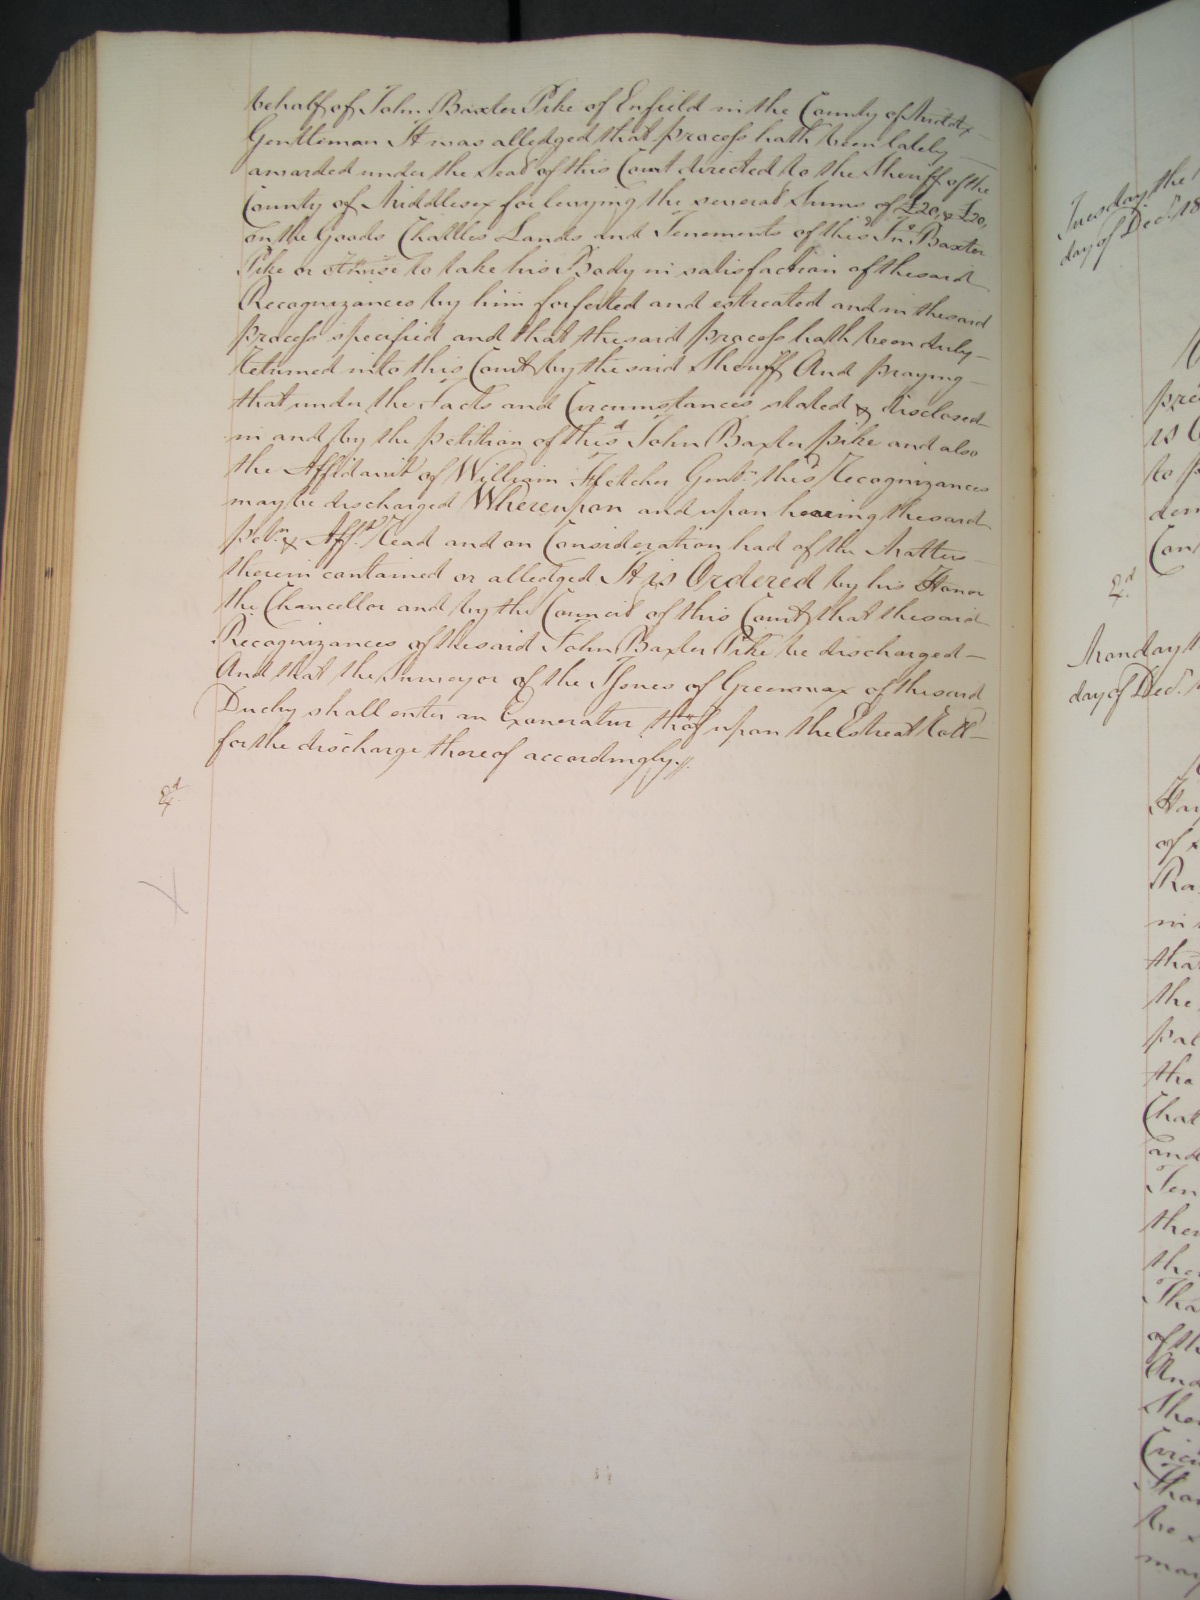 behalf of John Baxter Pike of Enfield in the County of Middx
Gentleman It was alledged that process hath been lately
awarded under the Seal of this Court directed to the Sheriff of the
County of Middlesex for levying the several Sums of £20, & £20,
on the Goods Chattles Lands and Tenements of the sd Jno Baxter
Pike or otherwise to take his Body in satisfaction of the said
Recognizances by him forfeited and estreated and in the said
process specified and that the said process hath been duly
Returned into this Court by the said Sheriff And praying
that under the Facts and Circumstances stated & disclosed
in and by the petition of the sd John Baxter Pike and also
the Affidavit of William Fletcher Gentn. the sd Recognizances
may be discharged Whereupon and upon hearing the said
petn. & Affdt. Read and on Consideration had of the Matters
therein contained or alledged It is Ordered by his Honor
the Chancellor and by the Council of this Court that the said
Recognizances of the said John Baxter Pike be discharged
And that the Surveyor of the Issues of Greenwax of the said
Duchy shall enter an Exoneratur upon the Estreat Roll
for the discharge thereof accordingly.
Tuesday the
day of Decr. 18
is
to
Monday
day of Decr.
of
in
that
the
Chat
and
Ten
the
of the
And
She
be
may